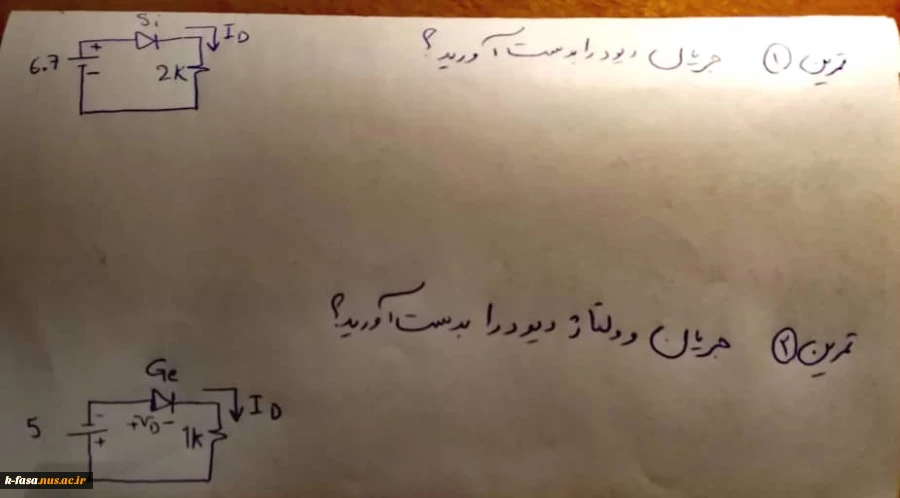 تمرین ① جریان دیود را بدست آورید؟
Si
I D
+
6.7
-
2K
تمرین ② جریان و ولتاژ دیود را بدست آورید؟
Ge
I D
-
5
+VD-
1K
+
k-fasa.nus.ac.ir